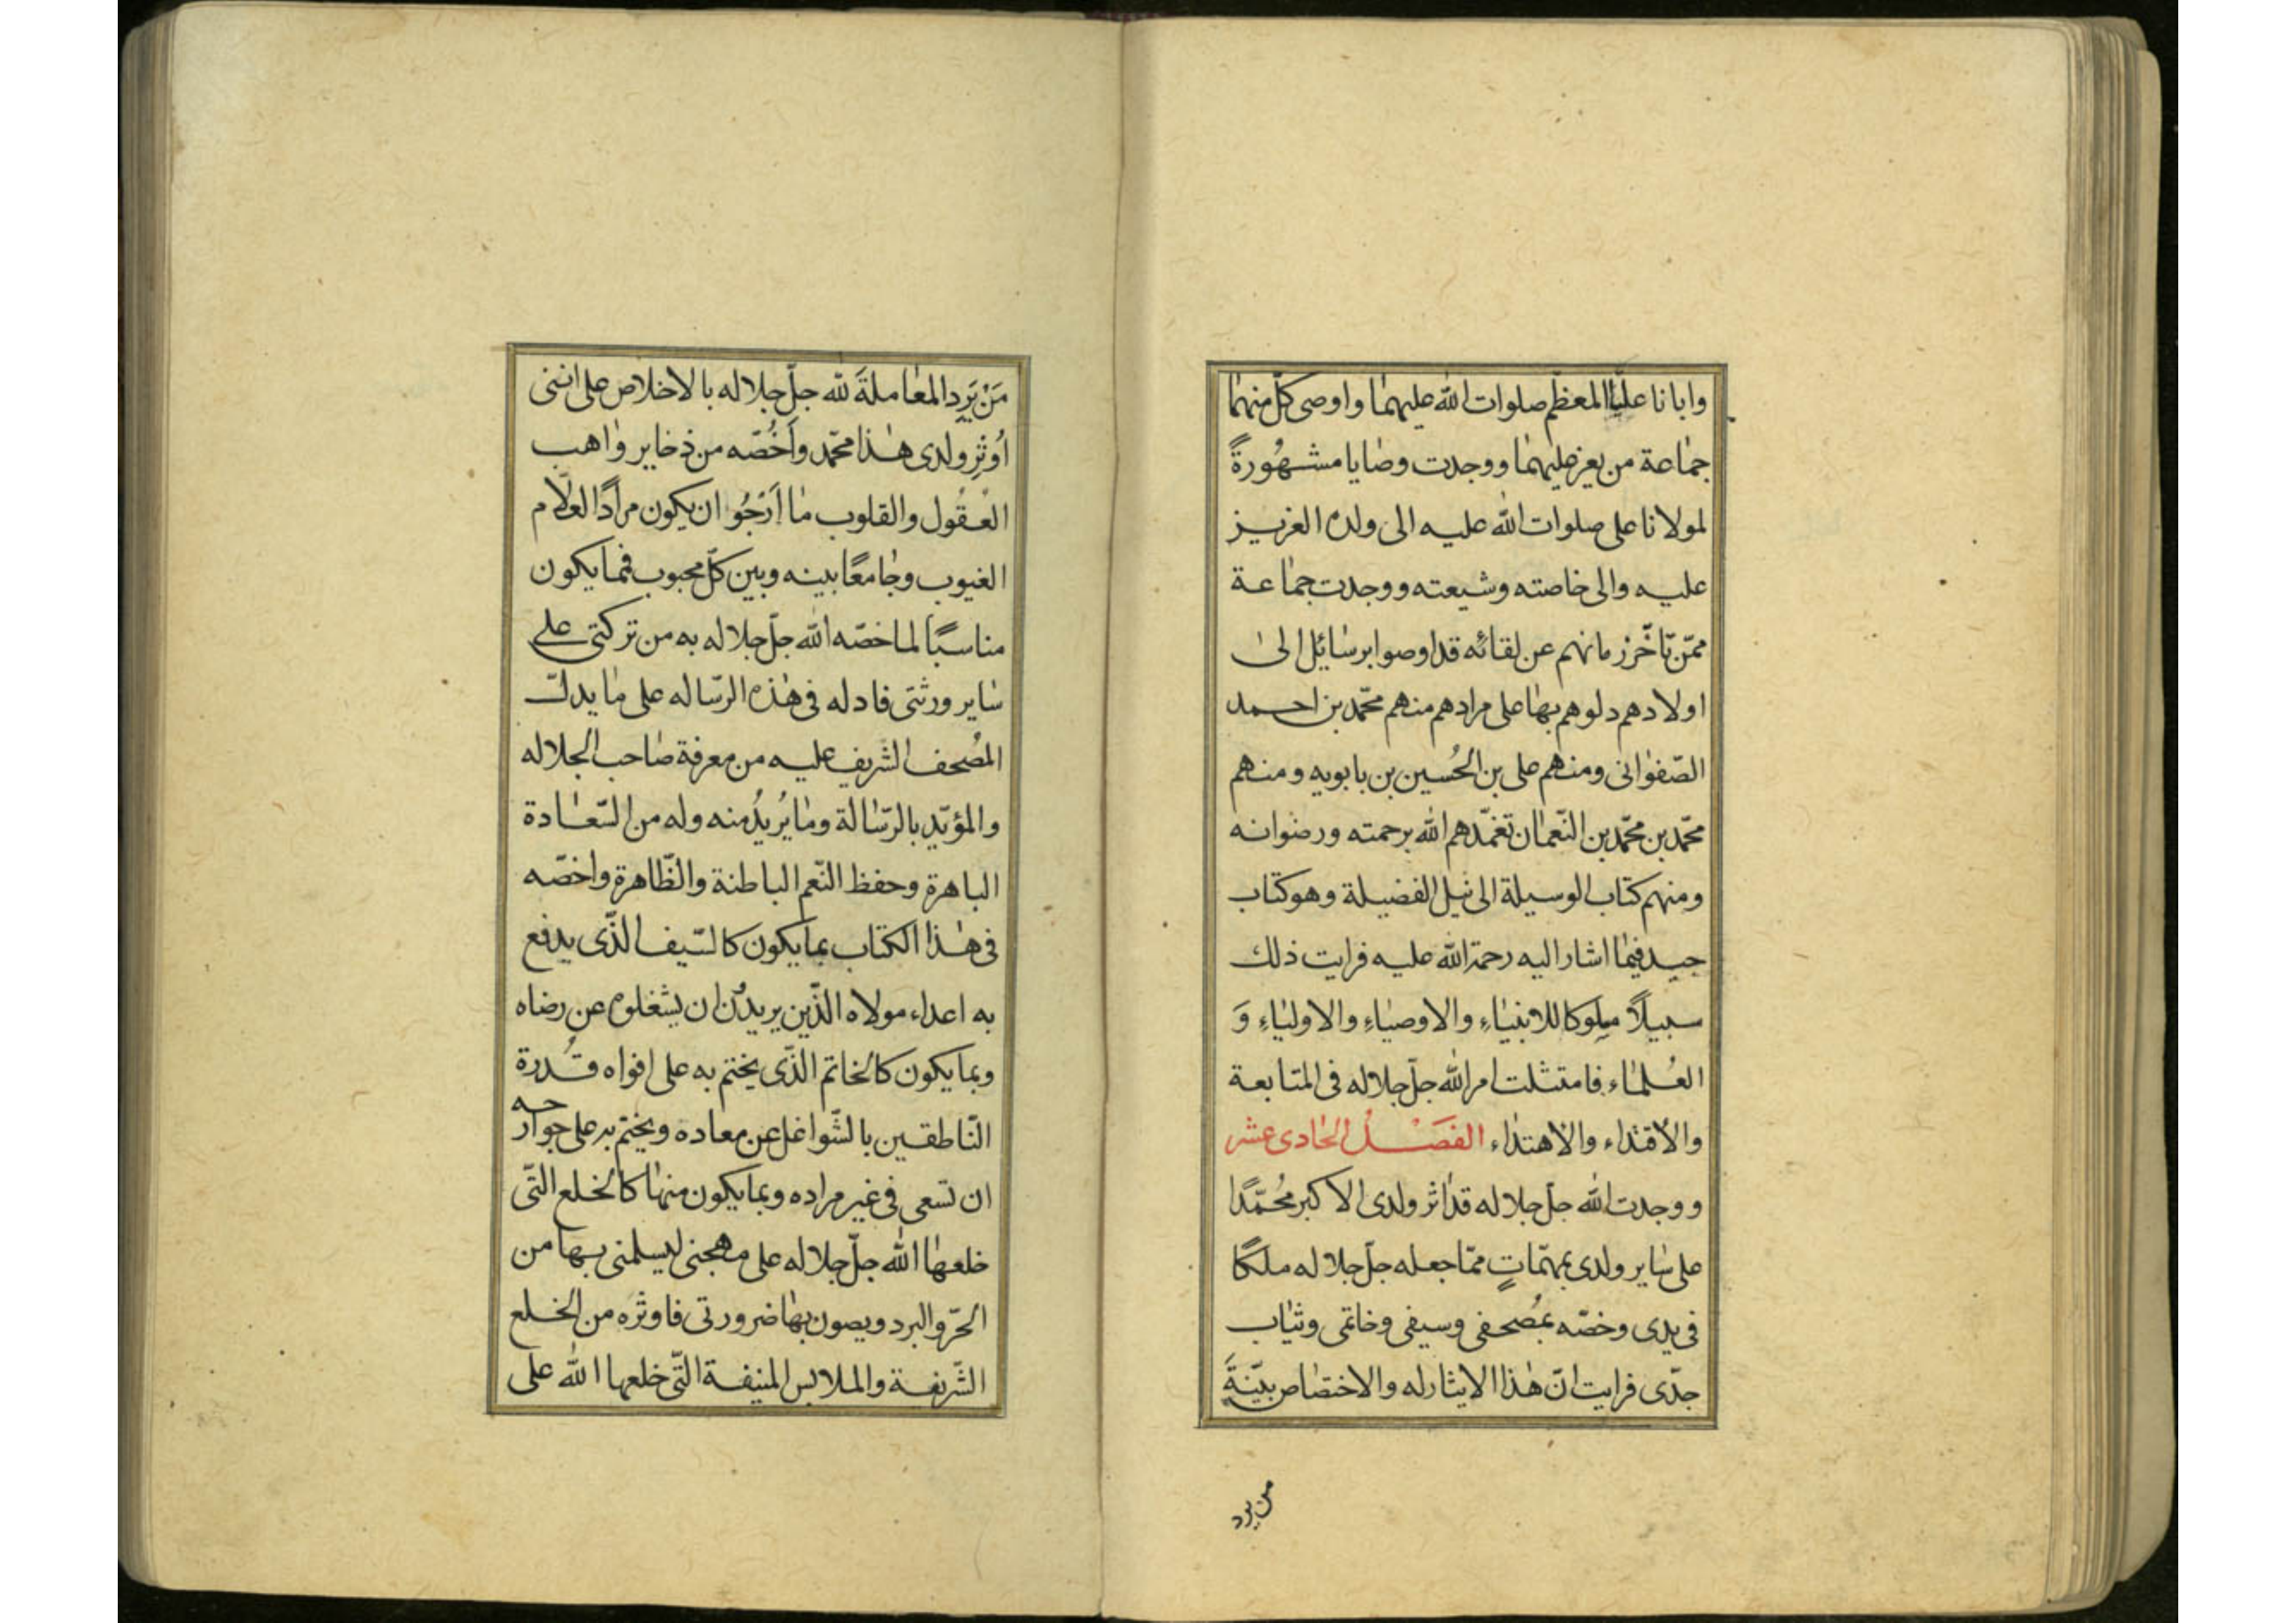 وابانا عليّا المعظّم صلوات الله عليهما واوصى كلّ منهما
جماعة من يعز عليهما ووجدت وصايا مشهُورةً
لمولانا على صلوات الله عليه الى ولده العزيز
عليه والى خاصته وشيعته ووجدت جماعة
ممّن تأخّر زمانهم عن لقائه قد اوصوا برسائل الى
اولادهم دلوهم بها على مرادهم منهم محمّد بن احمد
الصّفوانى ومنهم على بن الحُسين بن بابويه ومنهم
محمّد بن محمّد بن النّعمان تغمّدهم الله برحمته ورضوانه
ومنهم كتاب الوسيلة الى نيل الفضيلة وهو كتاب
جيد فيما اشار اليه رحمة الله عليه فرايت ذلك
سبيلاً مسلوكا للانبياءِ والاوصياءِ والاولياءِ وَ
العُلماء فامتثلت امر الله جلّ جلاله فى المتابعة
والاقتداء والاهتداء الفَصْلُ الحادى عشر
ووجدت الله جلّ جلاله قد اثر ولدى الاكبر مُحمّدًا
على ساير ولدى بمهمّاتٍ ممّا جعله جلّ جلاله ملكًا
فى يدى وخصّه بمُصحفى وسيفى وخاتمى وثياب
جدّى فرايت انّ هذا الايثار له والاختصاص بيّنةً
من يرد
مَنْ يَرِد المعاملةَ لله جلّ جلاله بالاخلاص على اننى
اُوثِر ولدى هذا محمّد واَخُصّه من ذخاير واهب
العقُول والقلوب ما اَرْجُو ان يكون مرادًا لعلّام
الغيوب وجامعًا بينه وبين كلّ محبوب فمما يكون
مناسبًا لما خصّه الله جلّ جلاله به من تركتى على
ساير ورثتى فادله فى هذه الرّساله على ما يدلّ
المُصحف الشريف عليه من معرفة صاحب الجلاله
والمؤيّد بالرّسالة وما يُريدُ منه وله من السّعادة
الباهرة وحفظ النّعم الباطنة والظّاهرة واخصّه
فى هذا الكتاب بما يكون كالسّيف الّذى يدفع
به اعداء مولاه الّذين يريدُن ان يشغلوه عن رضاه
وبما يكون كالخاتم الّذى يختم به على افواه قُدرة
النّاطقين بالشّواغل عن معاده ويختم به على جوارحه
ان تسعى فى غير مراده وبما يكون منها كالخلع الّتى
خلعها الله جلّ جلاله على مهجتى ليسلمنى بها من
الحرّ والبرد ويصون بها ضرورتى فاوثره من الخلع
الشّريفة والملابس المنيفة الّتى خلعها الله على